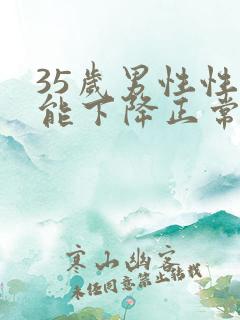 35歲男性性
能下降正常
寒山幽客
未经同意禁止转载